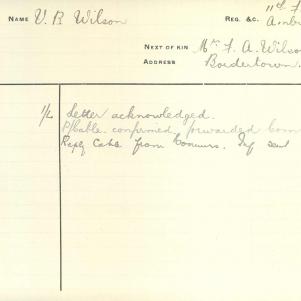 NAME V. B. Wilson REG. &C. 11th F
Ambu
NEXT OF KIN Mr F. A. Wilson
ADDRESS Bordertown.
1/2 Letter acknowledged.
P/Cable confirmed forwarded Comm
Reply Cable from Commrs. Inf sent